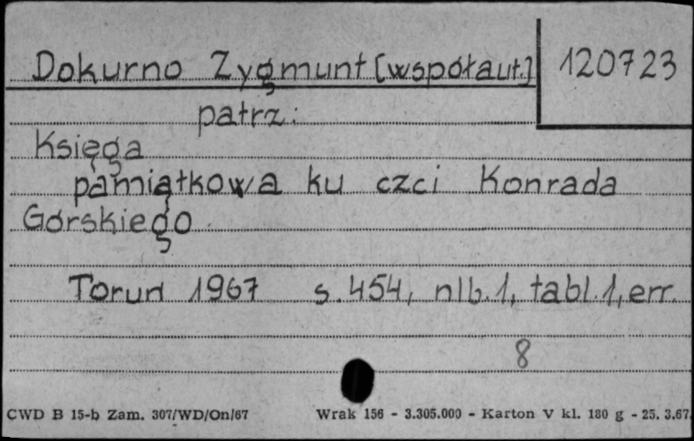 Dokurno Zygmunt [współaut.] 120723
patrz:
Księga
pamiątkowa ku czci Konrada
Górskiego.
Toruń 1967 s. 454, nlb. 1, tabl. 1, err.
8
CWD B 15-b Zam. 307/WD/On/67 Wrak 156 - 3.305.000 - Karton V kl. 180 g - 25. 3.67.